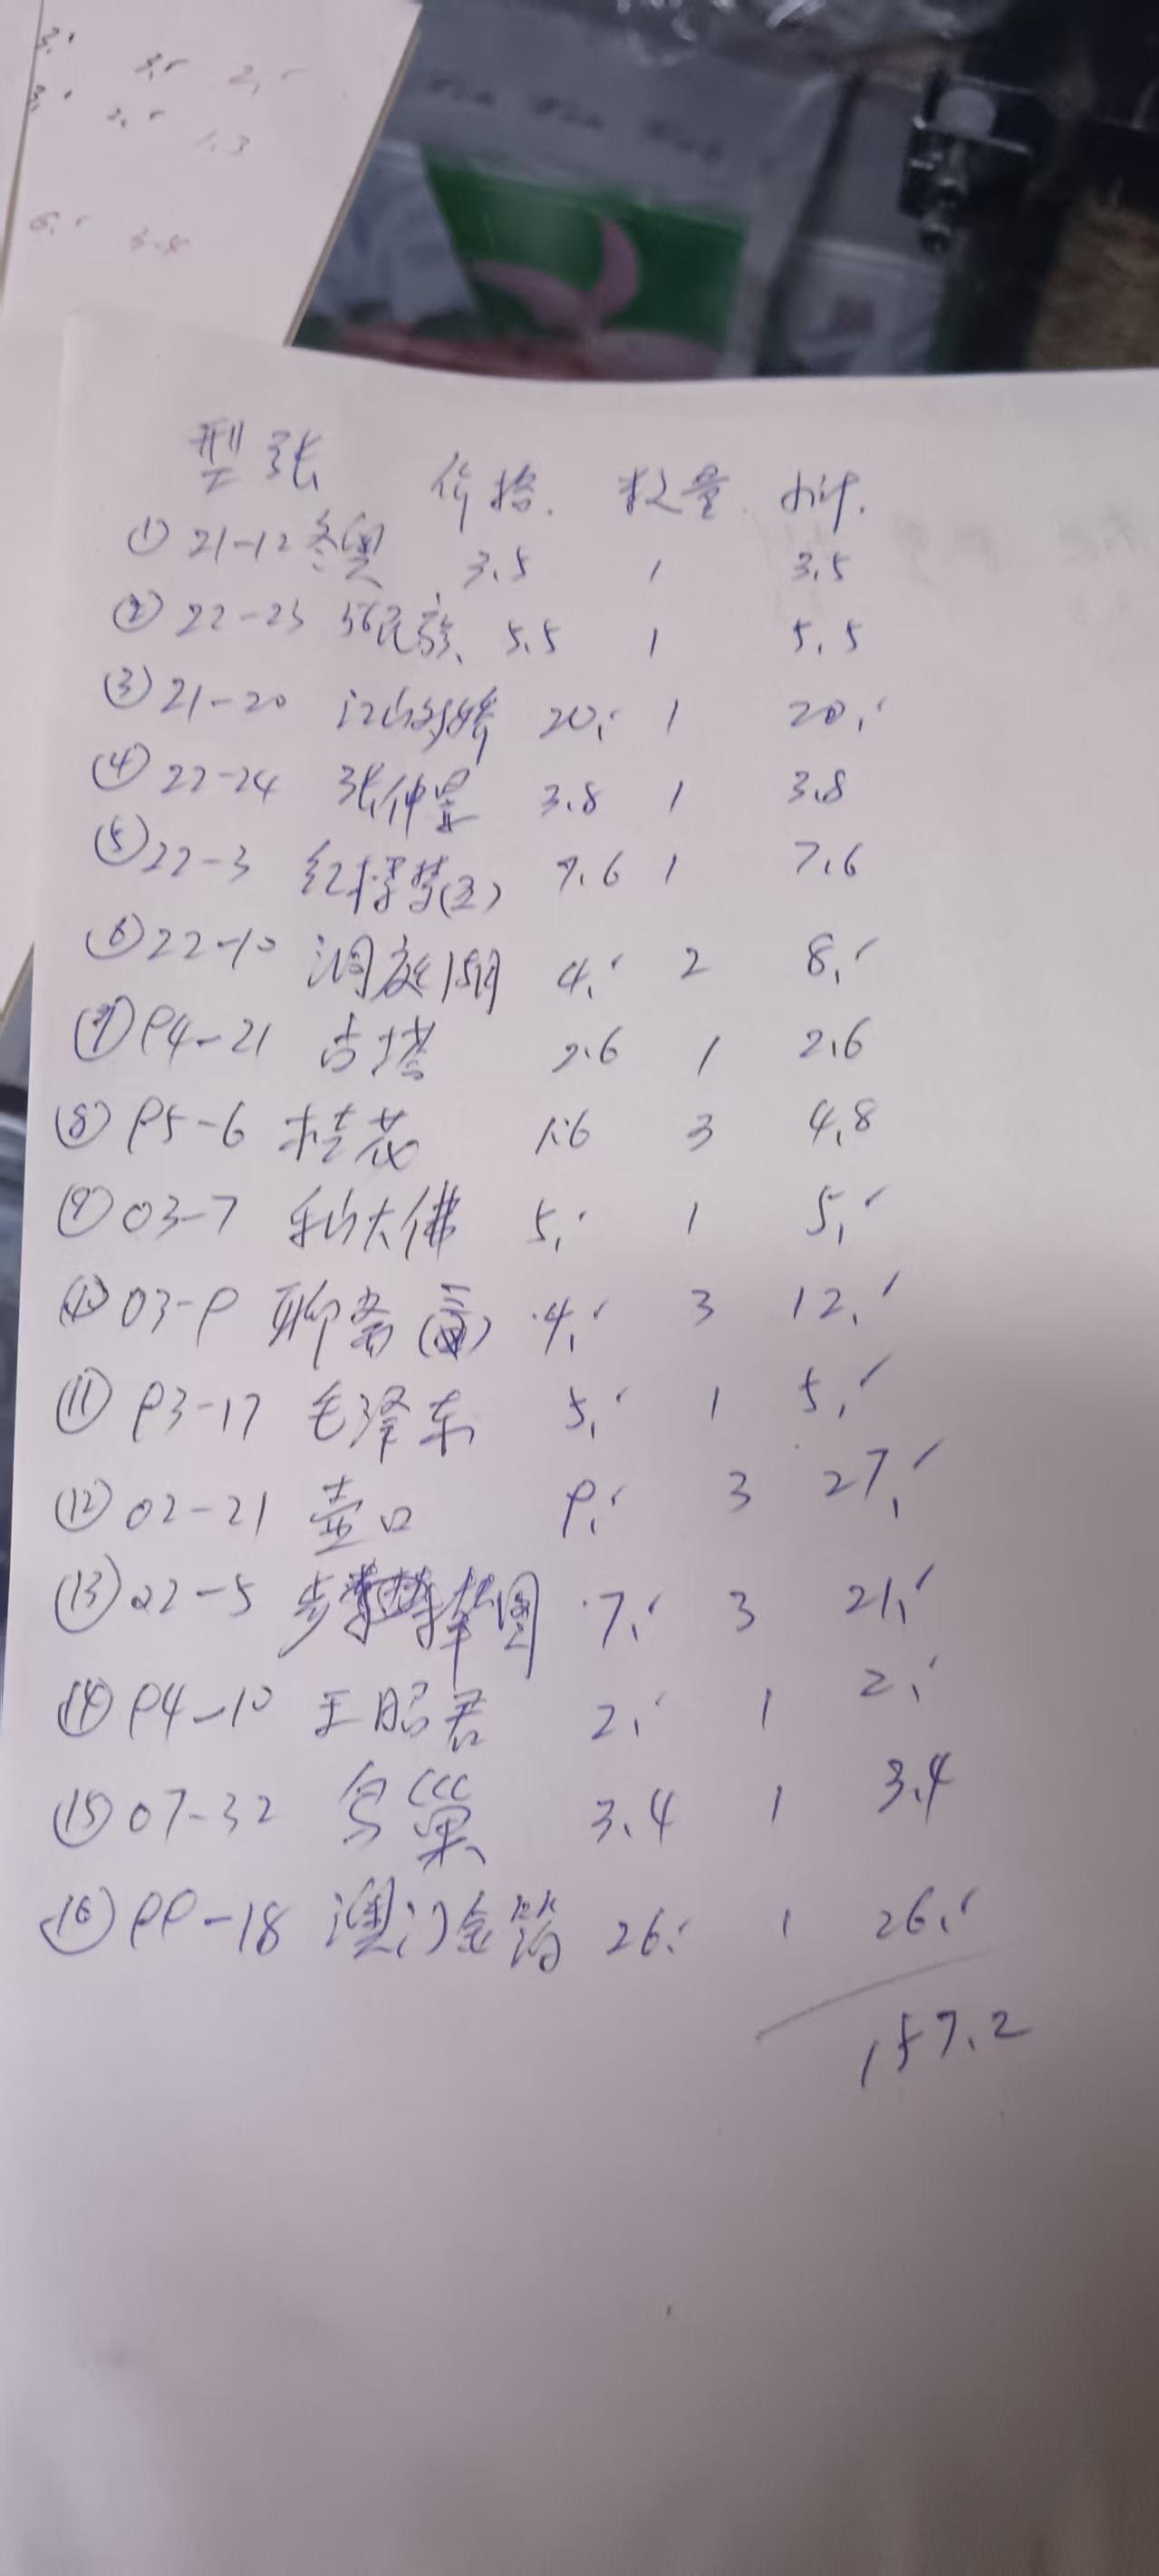 3.-
3.5 2.5
3.-
2.5
1.3
6.5 3.4
型张 价格. 数量. 小计.
① 21-12 冬奥 3.5 1 3.5
② 22-23 56民族、 5.5 1 5.5
③ 21-20 江山多娇 20.- 1 20.-
④ 22-24 张仲景 3.8 1 3.8
⑤ 22-3 红楼梦(五) 7.6 1 7.6
⑥ 22-10 洞庭湖 4.- 2 8.-
⑦ 94-21 古塔 2.6 1 2.6
⑧ 95-6 桂花 1.6 3 4.8
⑨ 03-7 乐山大佛 5.- 1 5.-
⑩ 03-9 聊斋 4.- 3 12.-
⑪ 93-17 毛泽东 5.- 1 5.-
⑫ 02-21 壶口 9.- 3 27.-
⑬ 02-5 步辇图 7.- 3 21.-
⑭ 94-10 王昭君 2.- 1 2.-
⑮ 07-32 鸟巢 3.4 1 3.4
⑯ 99-18 澳门金箔 26.- 1 26.-
157.2